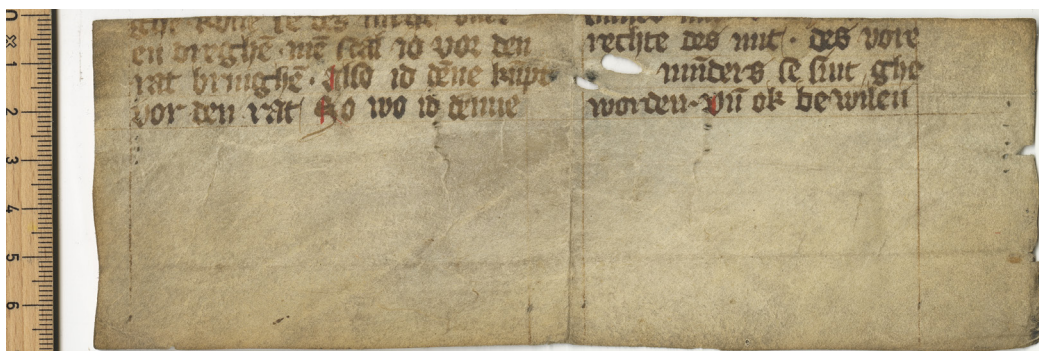 en dreghē · mē scal id vor den
rat bringhē · Also id dēne kūpt
vor den rat So wo id denne
rechte des nūt · des vore
mūders se sint ghe
worden · vn̄ ok be wilen